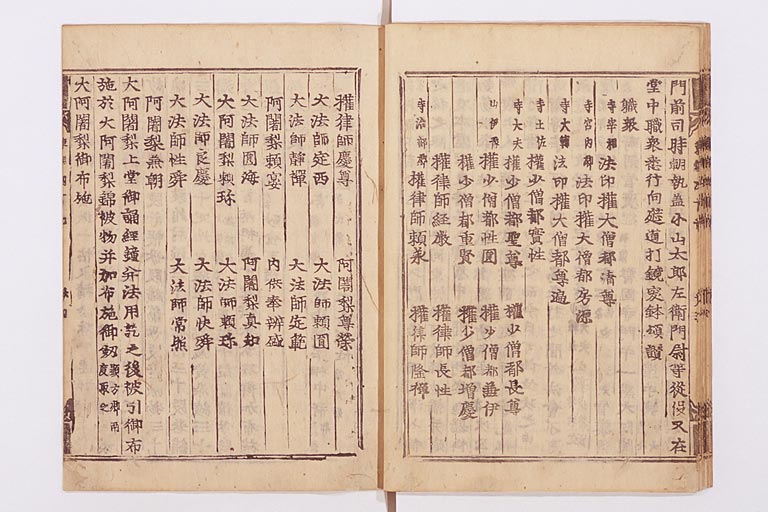 門前司時朝執蓋小山太郎左衛門尉等從役又在
堂中職衆悉行向庭道打鏡突鉢頌讃
職衆
寺宰相 法印權大僧都清尊
寺宮内卿 法印權大僧都房源
寺大輔 法印權大僧都尊遍
寺土佐 權少僧都實性
寺大夫 權少僧都聖尊 權少僧都長尊
山伊与 權少僧都性圓 權少僧都 伊
權少僧都重賢 權少僧都增慶
權律師經嚴 權律師長性
寺治部卿 權律師賴承 權律師隆禅
權律師慶尊 阿闍梨尊榮
大法師定西 大法師賴圓
大法師靜禪 大法師定範
阿闍梨賴宴 内供奉辨盛
大法師圓海 阿闍梨真如
大阿闍梨賴珎 大法師賴珎
大法師良慶 大法師快舜
大法師性舜 大法師常照
阿闍梨兼朝
大阿闍梨上堂御誦經鐘弁法用訖之後被引御布
施於大阿闍梨錦被物并加布施御剱 顯方卿両度取之
大阿闍梨御布施